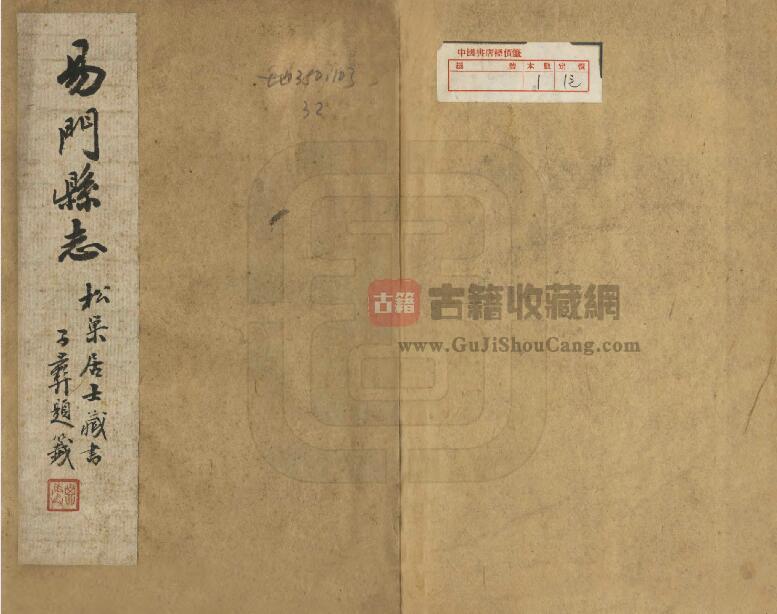 易門縣志
松巢居士藏書
子彝題籤
32
中國書店標價籤
冊數 本數 定價
1
古籍
古籍收藏網
www.GuJiShouCang.com